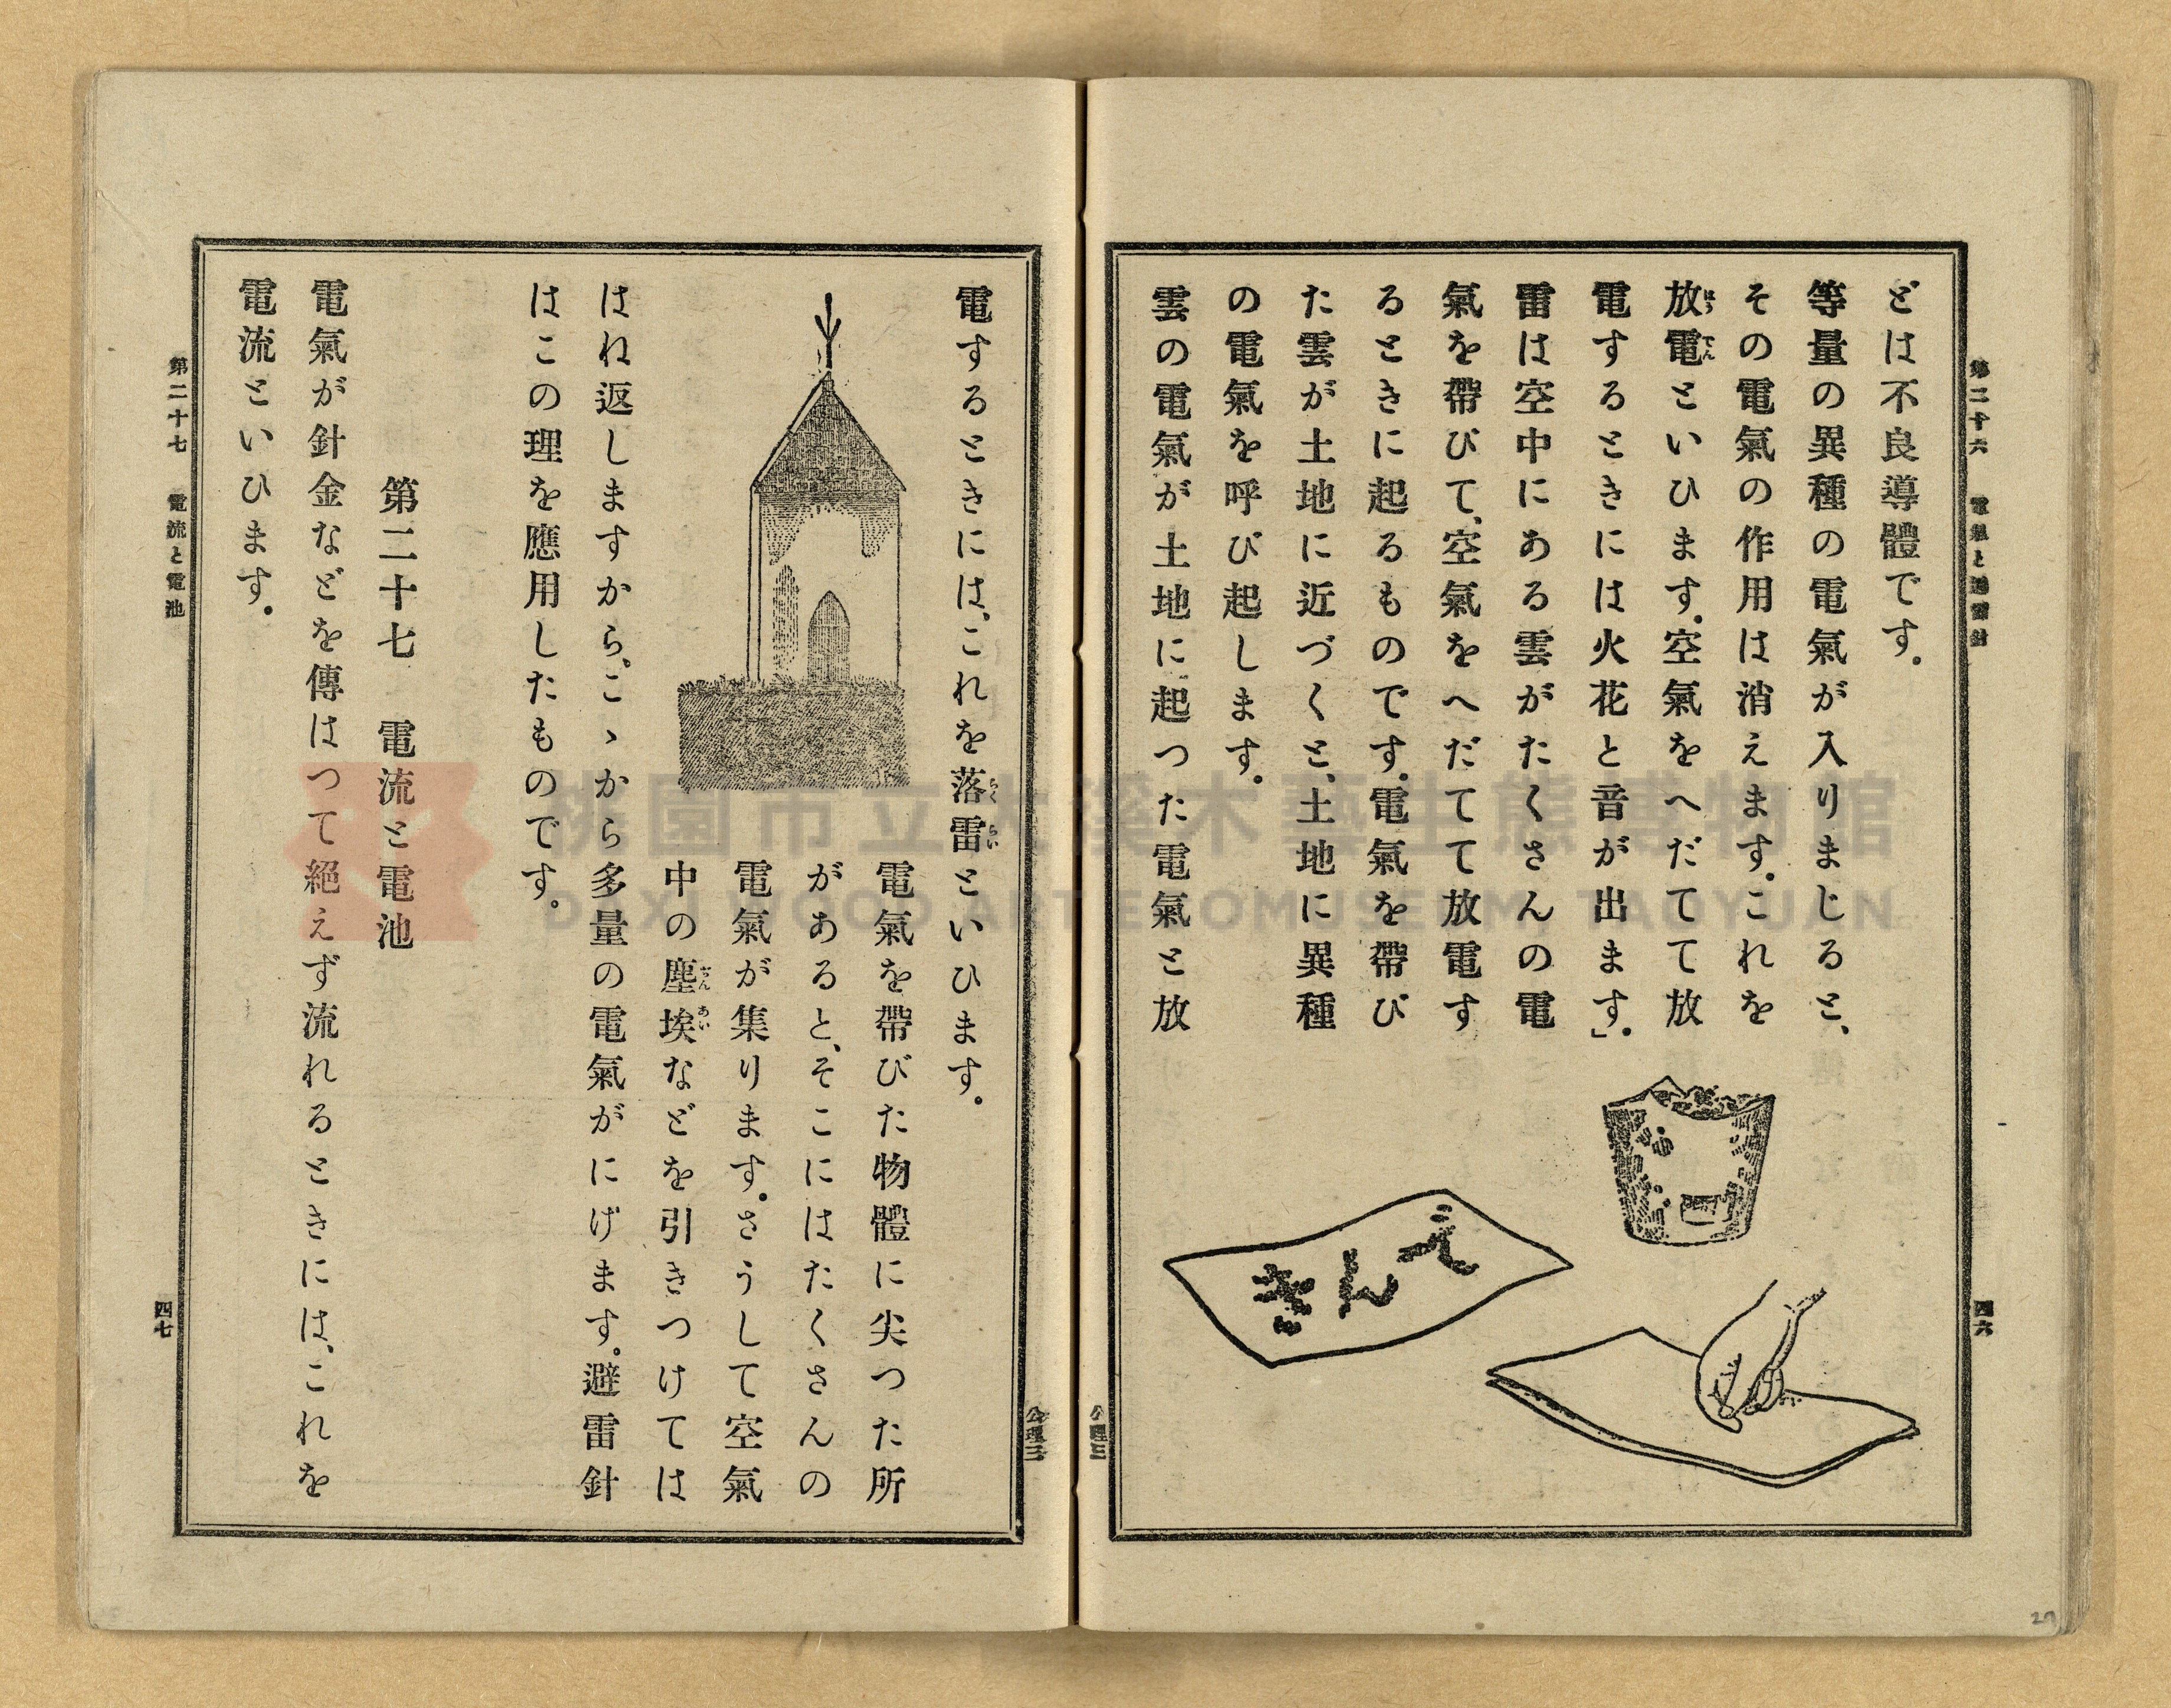 第二十六　電氣と避雷針
四六
どは不良導體です。
等量の異種の電氣が入りまじると、
その電氣の作用は消えます。これを
放電といひます。空氣をへだてて放
電するときには火花と音が出ます」。
雷は空中にある雲がたくさんの電
氣を帶びて、空氣をへだてて放電す
るときに起るものです。電氣を帶び
た雲が土地に近づくと、土地に異種
の電氣を呼び起します。
雲の電氣が土地に起つた電氣と放
えんき
公理三
公理三
電するときには、これを落雷といひます。
電氣を帶びた物體に尖つた所
があると、そこにはたくさんの
電氣が集ります。さうして空氣
中の塵埃などを引きつけては
はね返しますから、こゝから多量の電氣がにげます。避雷針
はこの理を應用したものです。
第二十七　電流と電池
電氣が針金などを傳はつて絕えず流れるときには、これを
電流といひます。
第二十七　電流と電池
四七
桃園市立大溪木藝生態博物館
DAXI WOOD ART ECOMUSEUM TAOYUAN
27